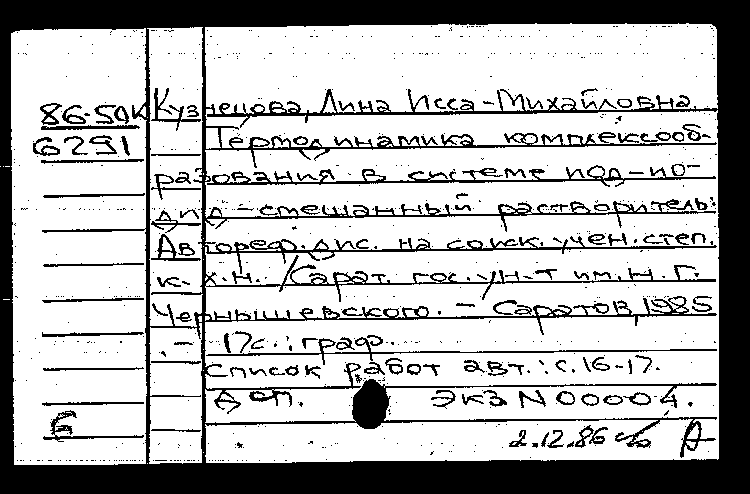 86-5АК Кузнецова, Лина Исса-Михайловна.
6291 Термодинамика комплексооб-
разования в системе иод-ио-
дид-смешанный растворитель:
Автореф. дис. на соиск. учен. степ.
к. х. н. /Сарат. гос. ун-т им. Н. Г.
Чернышевского. - Саратов, 1985
. - 17с.: граф.
Список работ авт.: с. 16-17.
ДСП. ЭКЗ N 00004.
Б
2.12.86 А